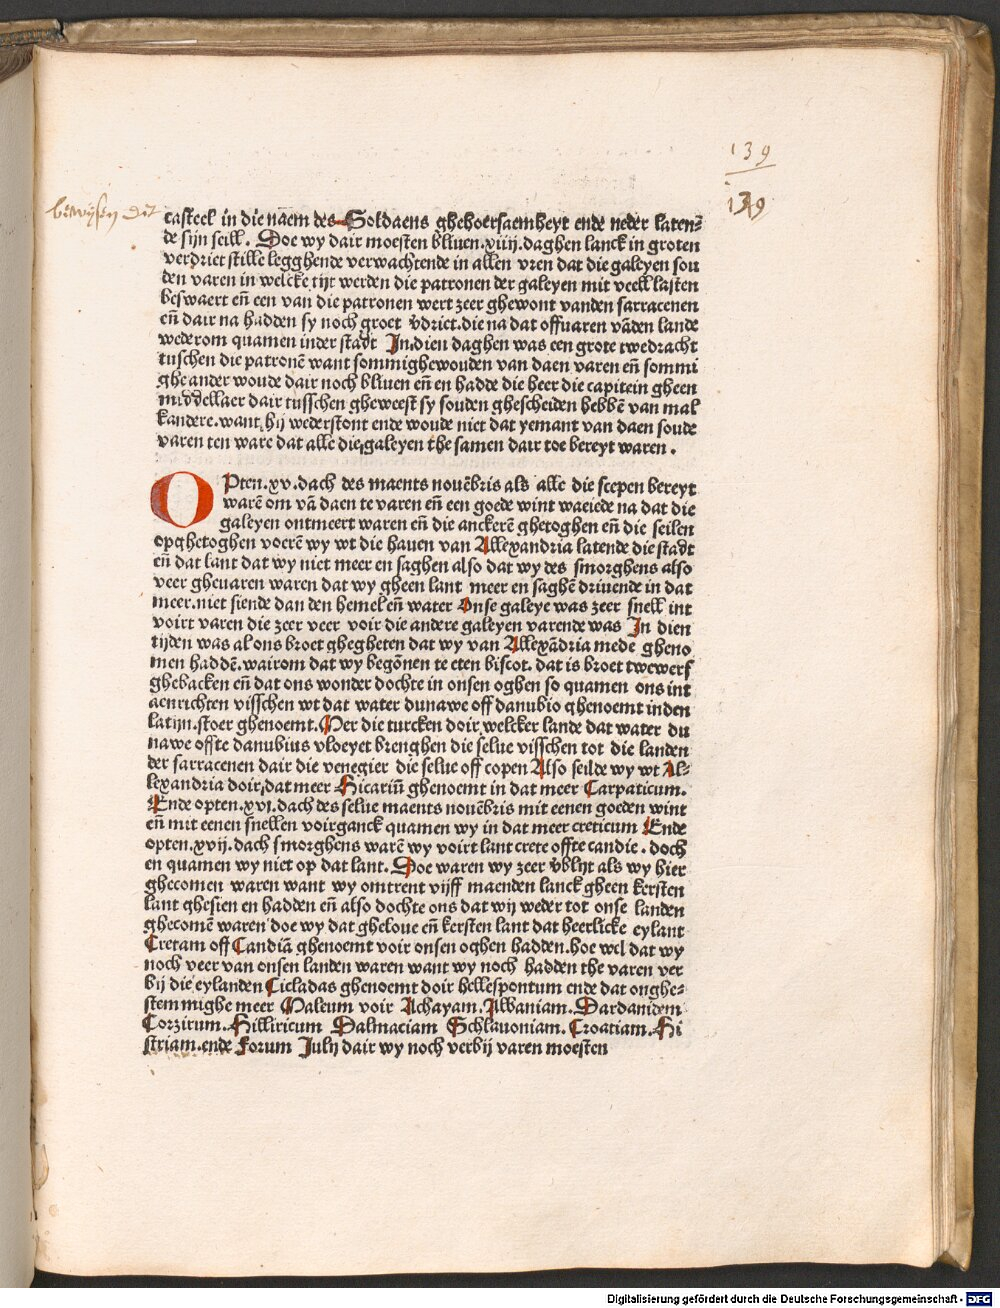 139
139
bewijsen dit
casteel in die naem des Soldaens ghehoersaemheyt ende neder laten⸗
de sijn seill. Doe wy dair moesten bliuen.xiiij.daghen lanck in groten
verdriet stille legghende verwachtende in allen vren dat die galeyen sou
den varen in welcke tijt werden die patronen der galeyen mit veell lasten
beswaert eñ een van die patronen wert zeer ghewont vanden sarracenen
eñ dair na hadden sy noch groet v̄driet.die na dat offuaren vādēn lande
wederom quamen inder stadt In.dien daghen was een grote twedracht
tuschen die patronē want sommighewouden van daen varen eñ sommi
ghe ander woude dair noch bliuen eñ en hadde die heer die capitein gheen
middellaer dair tusschen gheweest sy souden ghescheiden hebbē van mal
kandere.want hij wederstont ende woude niet dat yemant van daen soude
varen ten ware dat alle die galeyen the samen dair toe bereyt waren.
OPten.xv.dach des maents nouēbris als alle die scepen bereyt
warē om vā daen te varen eñ een goede wint waeiede na dat die
galeyen ontmeert waren eñ die anckerē ghetoghen eñ die seilen
opghetoghen voerē wy wt die hauen van Allexandria latende die stadt
eñ dat lant dat wy niet meer en saghen also dat wy des smorghens also
veer gheuaren waren dat wy gheen lant meer en saghē driuende in dat
meer.niet siende dan den hemel eñ water Onse galeye was zeer snell int
voirt varen die zeer veer voir die andere galeyen varende was In dien
tijden was al ons broet ghegheten dat wy van Allexādria mede gheno
men haddē.wairom dat wy begōnen te eten biscot.dat is broet twewerf
ghebacken eñ dat ons wonder dochte in onsen oghen so quamen ons int
aenrichten visschen wt dat water dunawe off danubio ghenoemt inden
latijn.stoer ghenoemt.Mer die turcken doir welcker lande dat water du
nawe offte danubius vloeyet brenghen die selue visschen tot die landen
der sarracenen dair die venegier die selue off copen Also seilde wy wt Al⸗
lexandria doir dat meer Hicariū ghenoemt in dat meer Carpaticum.
Ende opten.xvi.dach des selue maents nouēbris mit eenen goeden wint
eñ mit eenen snellen voirganck quamen wy in dat meer creticum Ende
opten.xvij.dach smorghens warē wy voirt lant crete offte candie.doch
en quamen wy niet op dat lant.Doe waren wy zeer v̄blijt als wy hier
ghecomen waren want wy omtrent vijff maenden lanck gheen kersten
lant ghesien en hadden eñ also dochte ons dat wij weder tot onse landen
ghecomē waren doe wy dat gheloue eñ kersten lant dat heerlicke eylant
Cretam off Candiā ghenoemt voir onsen oghen hadden.hoe wel dat wy
noch veer van onsen landen waren want wy noch hadden the varen ver
bij die eylanden Cicladas ghenoemt doir hellespontum ende dat onghe⸗
stemmighe meer Maleum voir Achayam.Albaniam.Dardaniem
Corzirum.Hilliricum Dalmaciam Schlauoniam.Croatiam.Hi
striam.ende Forum Julij dair wy noch verbij varen moesten
Digitalisierung gefördert durch die Deutsche Forschungsgemeinschaft - DFG